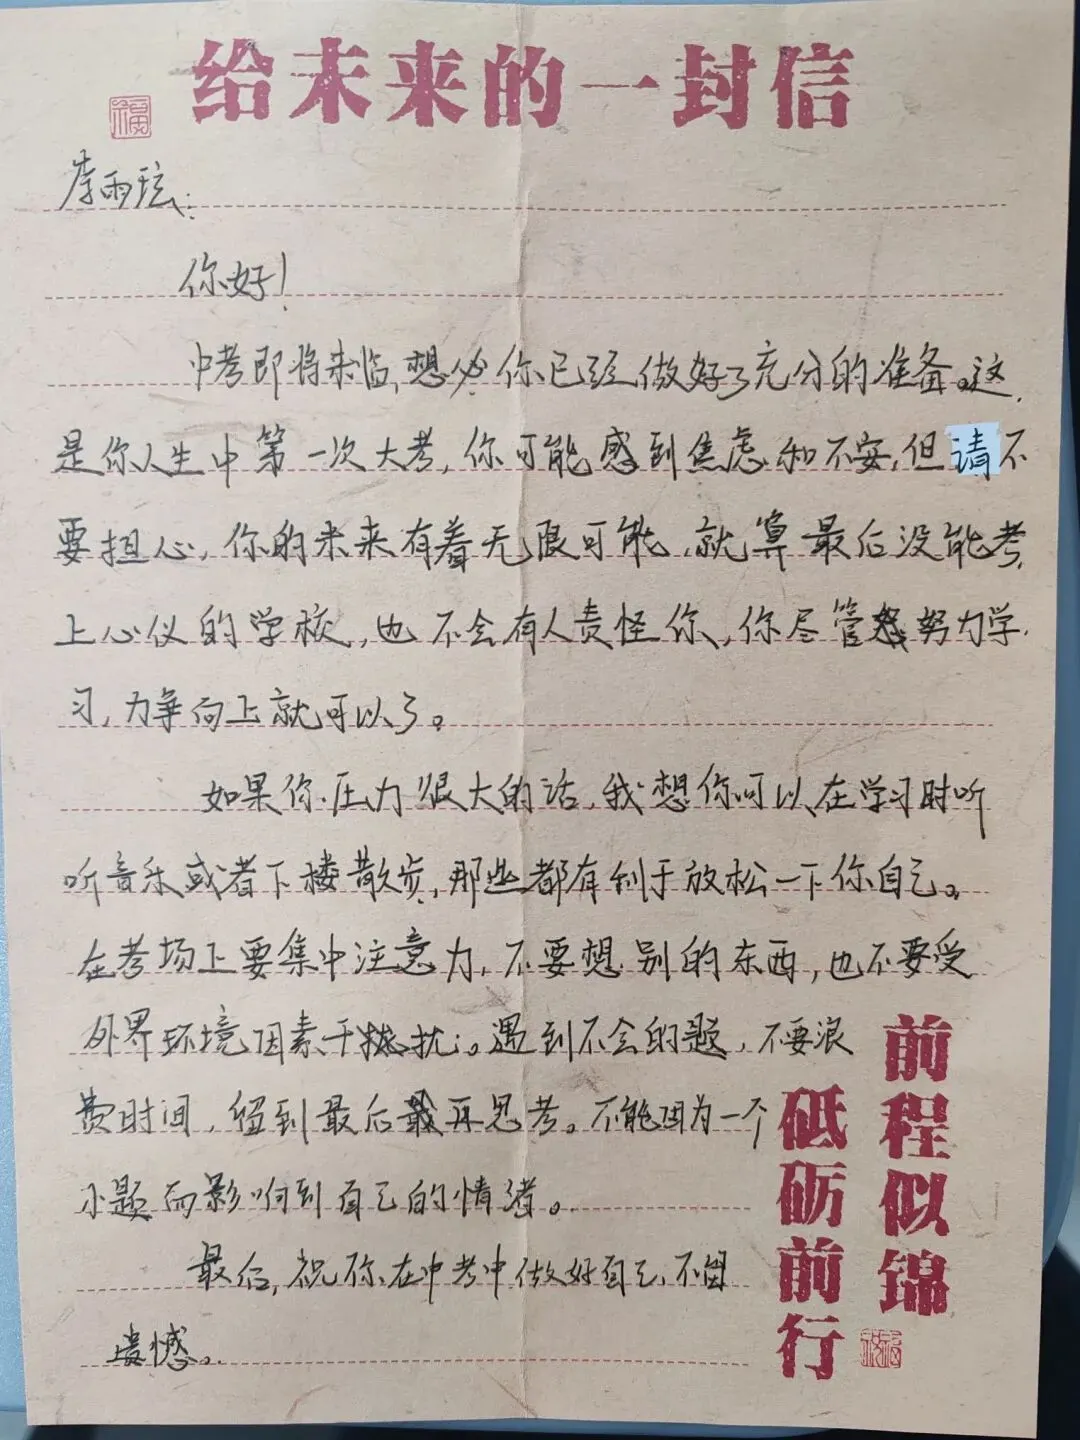 给未来的一封信
福
李雨
你好！
中考即将来临，想必你已经做好了充分的准备。这
是你人生中第一次大考，你可能感到焦虑和不安，但请不
要担心，你的未来有着无限可能，就算最后没能考
上心仪的学校，也不会有人责怪你，你尽管努力学
习，力争向上就可以了。
如果你压力很大的话，我想你可以在学习时听
听音乐或者下楼散步，那些都有利于放松一下你自己。
在考场上要集中注意力，不要想别的东西，也不要受
外界环境因素干扰。遇到不会的题，不要浪
费时间，留到最后再思考。不能因为一个
小题而影响到自己的情绪。
最后，祝你在中考中做好自己，不留
遗憾。
前程似锦
砥砺前行